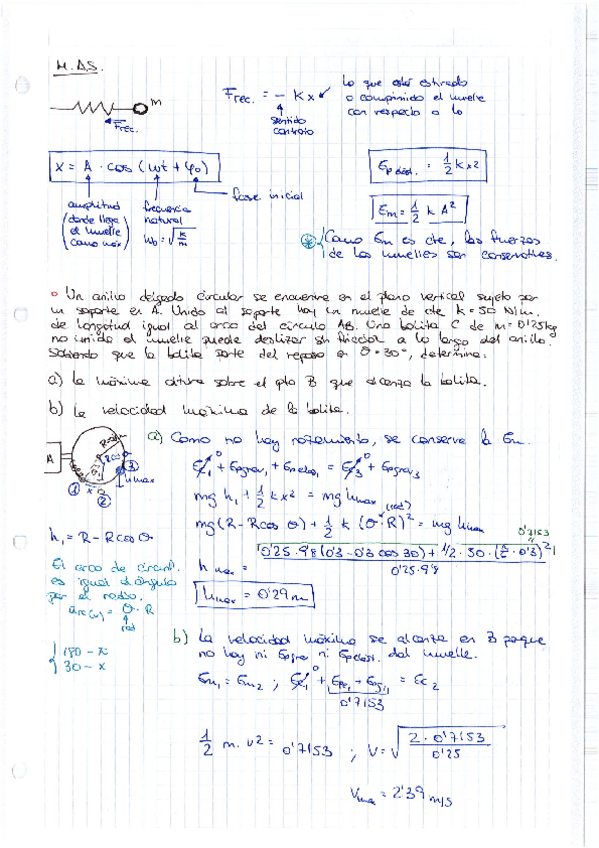 M.A.S.
m
Frec.
Frec. = - K x
sentido
contrario
Lo que está estirado
o comprimido el muelle
con respecto a lo
x = A · cos (ωt + φ0)
fase inicial
amplitud
(donde llega
el muelle
como máx)
frecuencia
natural
ω0 = √k/m
Ep elást. = 1/2 k x²
Em = 1/2 k A²
Como Em es cte, las fuerzas
de los muelles son conservativas.
Un anillo delgado circular se encuentra en el plano vertical sujeto por
un soporte en A. Unido al soporte hay un muelle de cte k = 50 N/m.
de longitud igual al arco del círculo AB. Una bolita C de m = 0'25 kg
no unida al muelle puede deslizar sin fricción a lo largo del anillo.
Sabiendo que la bolita parte del reposo en θ = 30°, determina:
a) La máxima altura sobre el pto B que alcanza la bolita.
b) La velocidad máxima de la bolita.
A
R
x
hmax
① ② ③
h1 = R - R cos θ
El arco de circunf.
es igual al ángulo
por el radio.
arc(x) = θ · R
rad
180 - π
30 - x
a) Como no hay rozamiento, se conserva la Em.
Ec1 + Epgrav1 + Epelás1 = Ec3 + Epgrav3
mg h1 + 1/2 k x² = mg hmax
(rad)
mg (R - R cos θ) + 1/2 k (θ · R)² = mg hmax
0'7153
h max = 0'25 · 9'8 (0'3 - 0'3 cos 30) + 1/2 · 50 · (π/6 · 0'3)² / 0'25 · 9'8
hmax = 0'29 m
b) La velocidad máxima se alcanza en B porque
no hay ni Epgrav ni Epelást. del muelle.
Em1 = Em2 ; Ec1 + Epe1 + Epg1 = Ec2
0'7153
1/2 m · v² = 0'7153 ; V = √2 · 0'7153 / 0'25
Vmax = 2'39 m/s